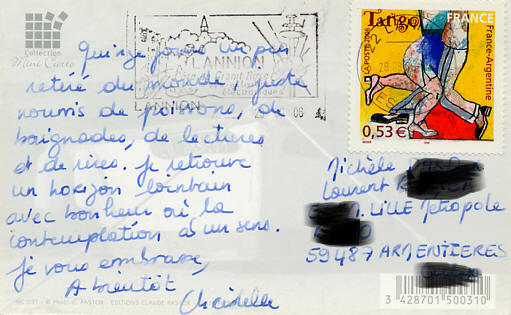 Collection
Mini Cartes
Quinze jours un peu
retiré du monde, juste
nourris de poissons, de
baignades, de lectures
et de rires. Je retrouve
un horizon lointain
avec bonheur où la
contemplation a un sens.
Je vous embrasse,
A bientôt
LANNION
LANNION
08
LA POSTE 2006
Tango
FRANCE
France-Argentine
0,53€
Michèle
Laurent
LILLE Métropole
59487 ARMENTIERES
PASTOR - EDITIONS CLAUDE PASTOR
3 428701 500310